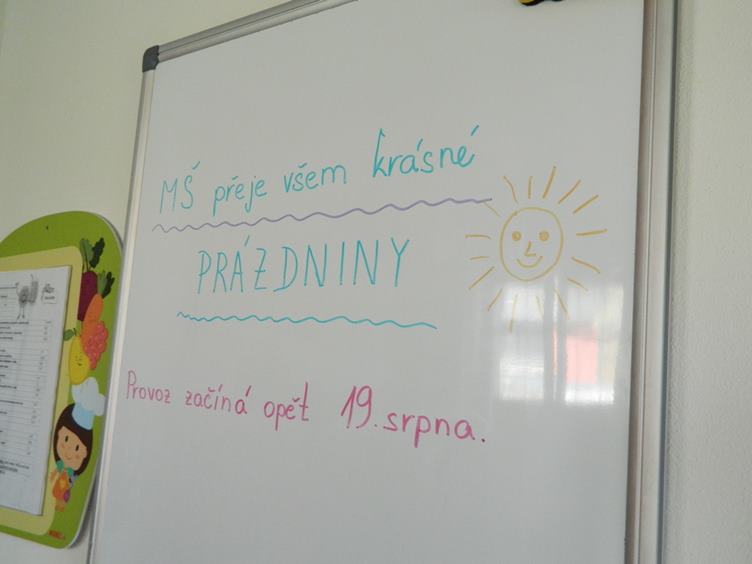 MŠ přeje všem krásné
PRÁZDNINY
Provoz začíná opět 19. srpna.